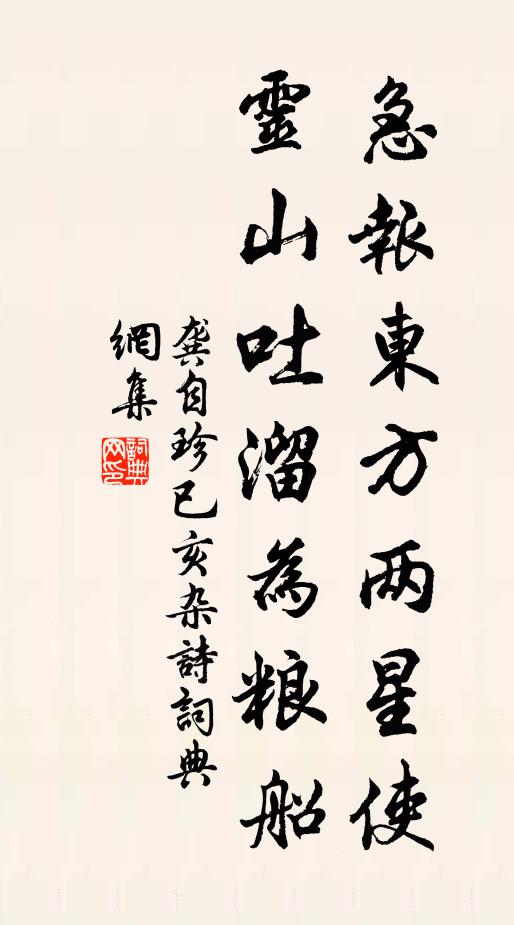 急報東方两星使
靈山吐溜為粮船
龔自珍己亥杂詩詞典
網集
詞典
网印